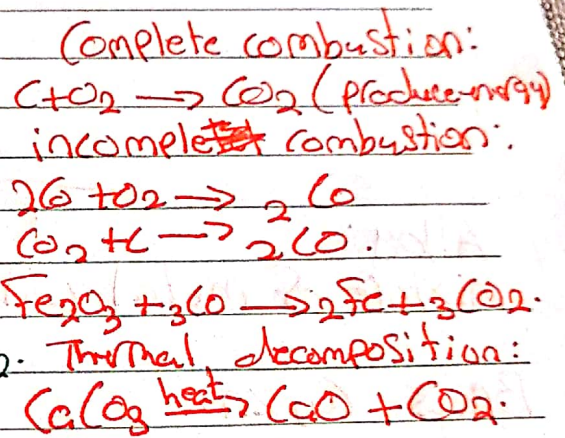 Complete combustion:
C+O2 → CO2 (produce energy)
incomplete combustion:
2C + O2 → 2CO
CO2 + C → 2CO.
Fe2O3 + 3CO → 2Fe + 3CO2.
2. Thermal decomposition:
CaCO3 heat→ CaO + CO2.